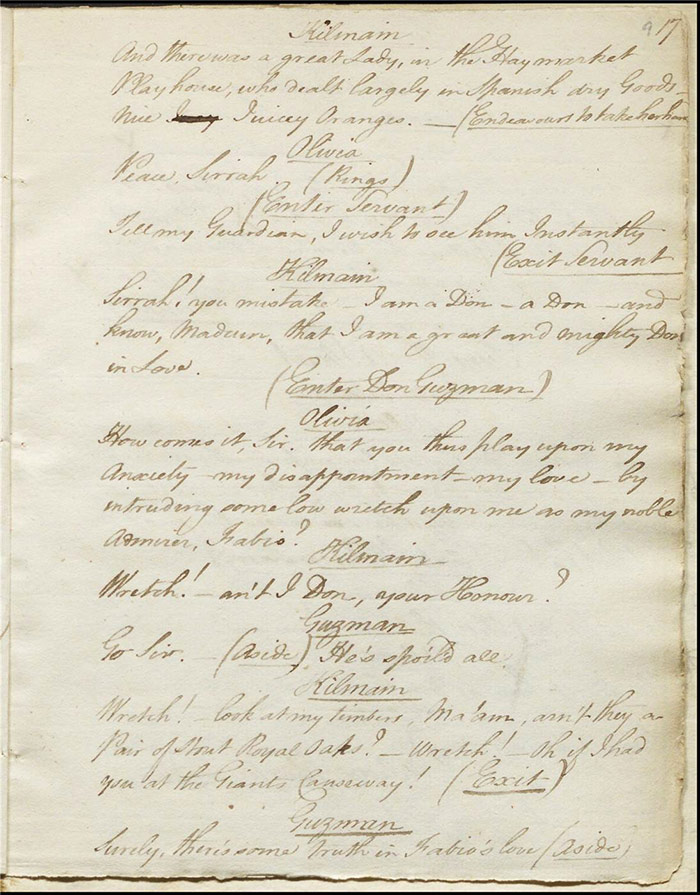 9 17
Kilmain
And there was a great Lady, in the Haymarket
Playhouse, who dealt largely in Spanish dry Goods –
Nice Juicey Oranges. – (Endeavours to take her han
Olivia
Peace, Sirrah (Rings)
(Enter Servant)
Tell my Guardian, I wish to see him Instantly
(Exit Servant
Kilmain
Sirrah! you mistake – I am a Don – a Don – and
know, Madam, that I am a great and mighty Don
in Love.
(Enter Don Guzman)
Olivia
How comes it, Sir. that you thus play upon my
Anxiety – my disappointment – my love – by
intruding some low wretch upon me as my noble
Admirer, Fabio?
Kilmain
Wretch! – an't I Don, your Honour?
Guzman
Go Sir. – (Aside) He's spoild all.
Kilmain
Wretch! – look at my timbers, Ma'am, ain't they a
Pair of Stout Royal Oaks? – Wretch! – Oh if I had
you at the Giants Causeway! (Exit)
Guzman
Surely, there's some truth in Fabio's love (Aside)